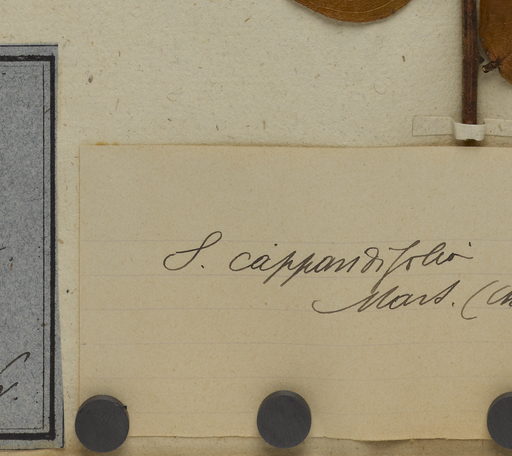 S. cappandifolia
Mart. (